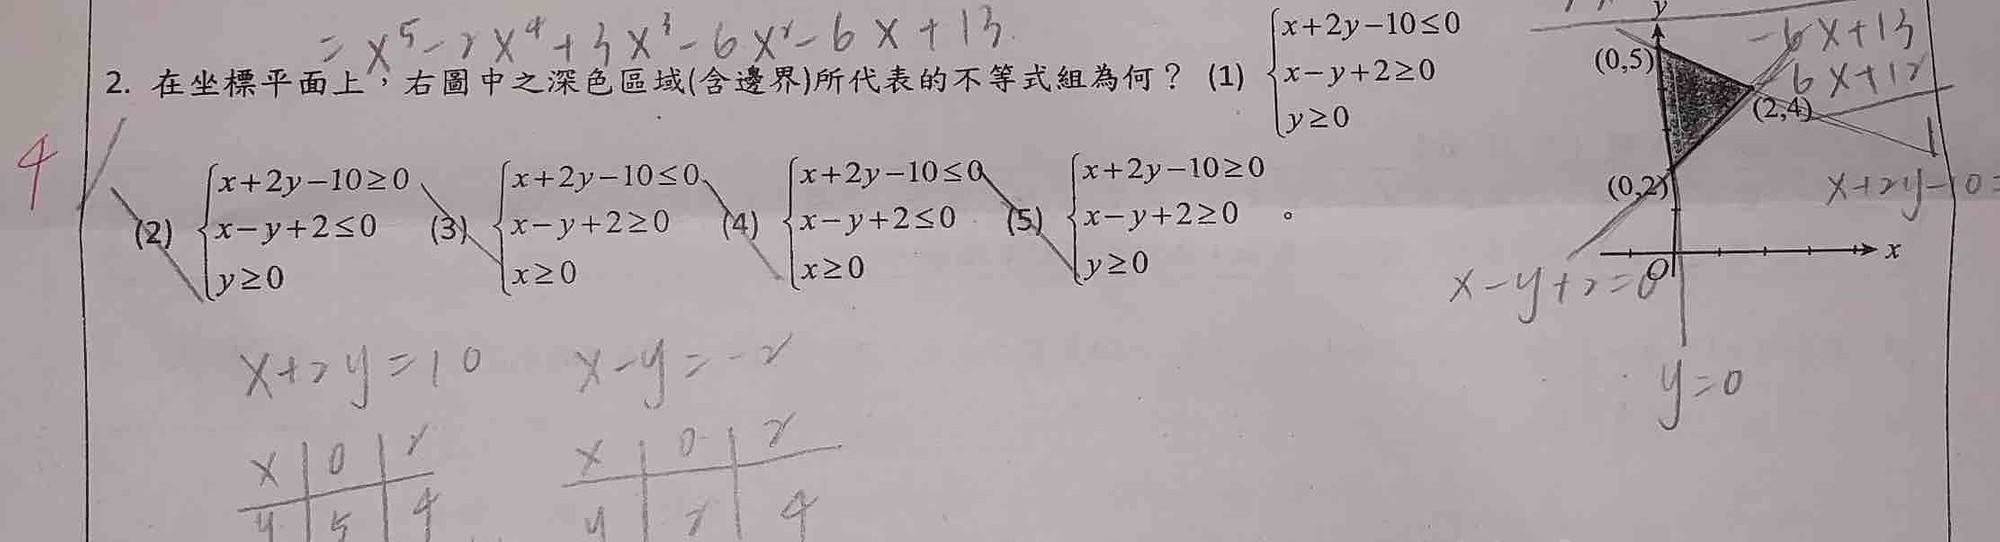 = x⁵ - 2x⁴ + 3x³ - 6x² - 6x + 13
2. 在坐標平面上，右圖中之深色區域(含邊界)所代表的不等式組為何？ (1) { x+2y−10≤0
x−y+2≥0
y≥0
(2) { x+2y−10≥0
x−y+2≤0
y≥0
(3) { x+2y−10≤0
x−y+2≥0
x≥0
(4) { x+2y−10≤0
x−y+2≤0
x≥0
(5) { x+2y−10≥0
x−y+2≥0
y≥0 。
4
y
(0,5)
(2,4)
(0,2)
O
x
-6x+13
6x+12
1
x+2y-10=
x-y+2=0
y=0
x+2y=10
x-y=-2
x 0 2
y 5 4
x 0 2
y 2 4